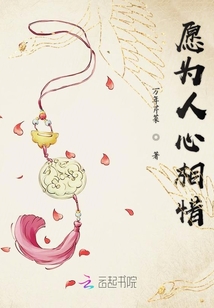 愿为人心相惜
万年芹菜
著
云起书院